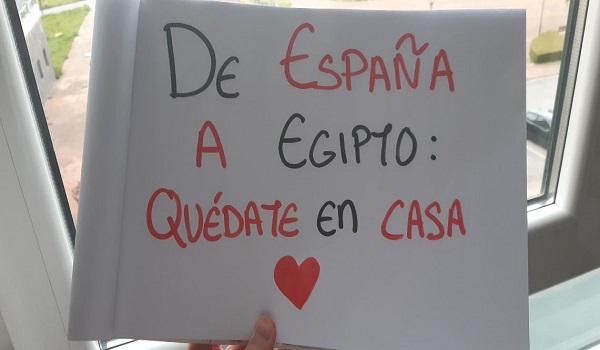 DE ESPAÑA
A EGIPTO:
QUÉDATE EN CASA